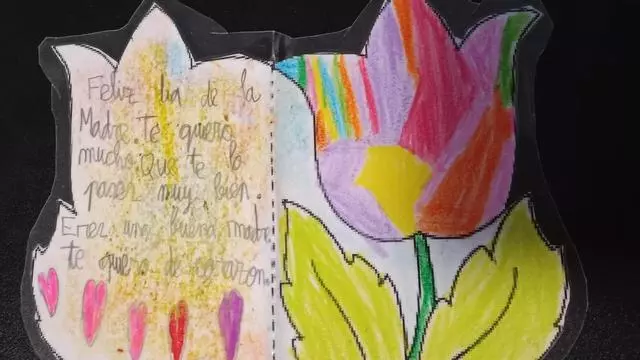 Feliz dia de la
Madre. Te quiero
mucho. Que te lo
pases muy bien.
Erez una buena madre
te quiero de corazon.